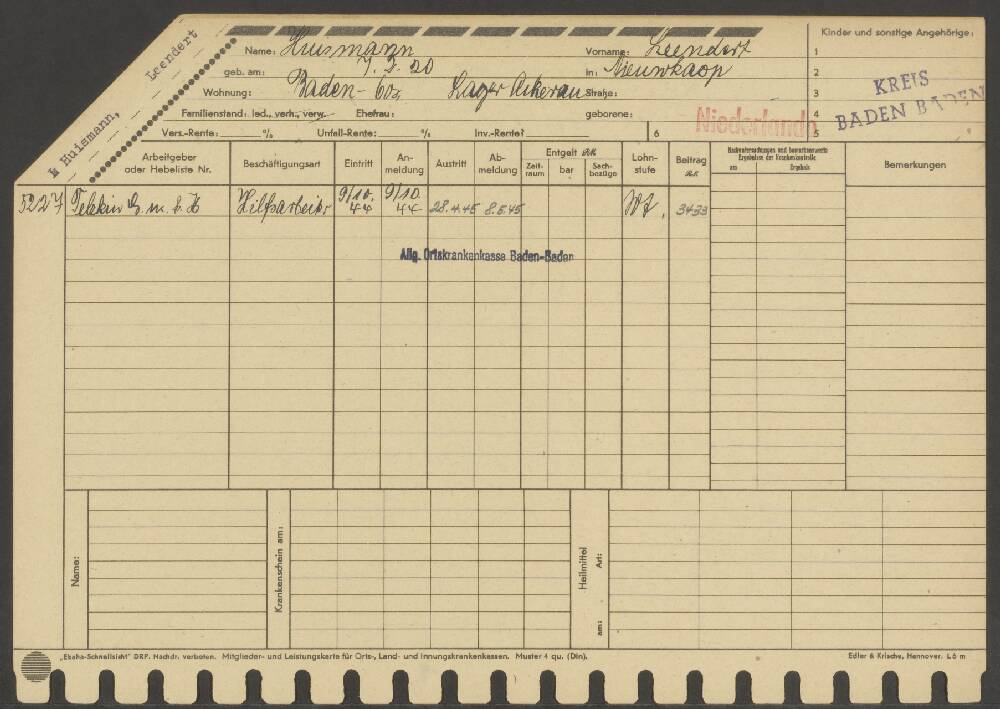 Huismann, Leendert
Name: Huismann Vorname: Leendert
geb. am: 7.2.20 in: Nieuwkaop
Wohnung: Baden-Oos Lager Aumatt Straße:
Familienstand: led., verh., verw. Ehefrau: geborene:
Vers.-Rente: % Unfall-Rente: % Inv.-Rente?
Kinder und sonstige Angehörige:
1
2
3
4
5
6
Niederlande
KREIS
BADEN BADEN
Arbeitgeber oder Hebeliste Nr. Beschäftigungsart Eintritt An-meldung Austritt Ab-meldung Entgelt RM Zeit-raum bar Sach-bezüge Lohn-stufe Beitrag RM am Ergebnis Bemerkungen
5227 G.m.b.H Hilfsarbeiter 9/10. 44 9/10. 44 28.4.45 8.5.45 3433
Allg. Ortskrankenkasse Baden-Baden
Name:
Krankenschein am:
Heilmittel
Art:
am:
„Ekaha-Schnellsicht" DRP. Nachdr. verboten. Mitglieder- und Leistungskarte für Orts-, Land- und Innungskrankenkassen. Muster 4 qu. (Din). Edler & Krische, Hannover. L 6 m